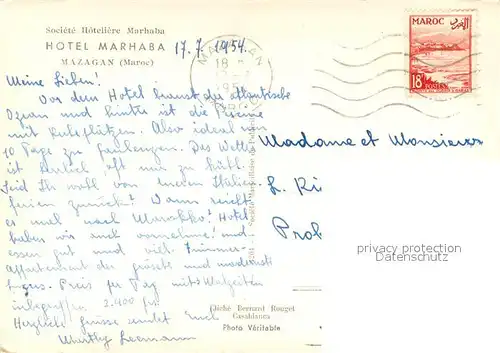 Société Hôtelière Marhaba
HOTEL MARHABA
MAZAGAN (Maroc)
17.7.1954.
MAROC
18F
POSTES
Meine Lieben!
Vor dem Hotel braust der Atlantische
Ozean und hinter ist die Piscine
mit Ruheplätzen. Also ideal um
10 Tage zu faulenzen. Das Wetter
ist herrlich oft nur zu kühl.
Seid Ihr wohl von Euren Italien
ferien zurück? Wann reicht
es mal nach Marokko? Hotel
haben wir auch vornehme! und
essen gut und viel. Zimmer-
Appartement der größte und modernste
Luxus. Preis per Tag mit Mahlzeiten
inbegriffen 2.400 frs.
Herzliche Grüsse sendet Euch
Madame et Monsieur
L. Ri
Prob
privacy protection
www.oldthing.de
Cliché Bernard Rouget
Casablanca
Photo Véritable